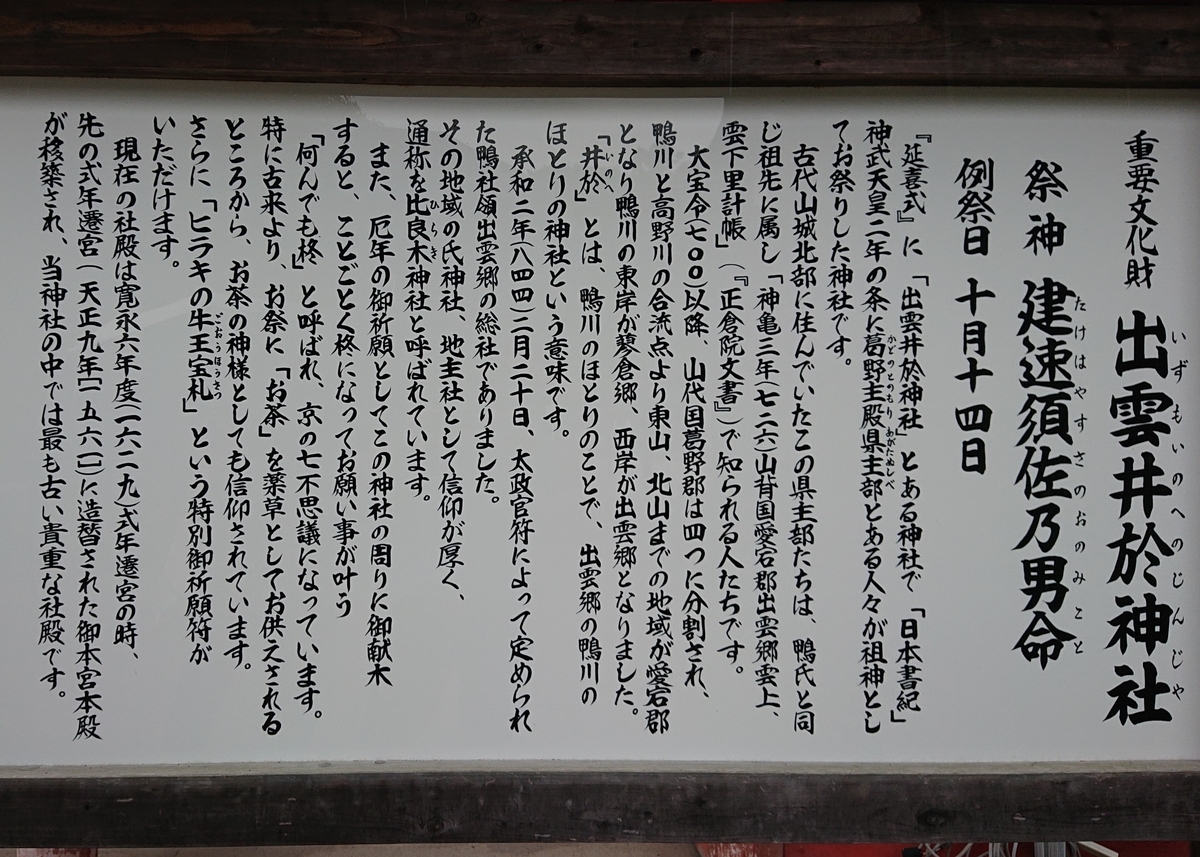 重要文化財 出雲井於神社
いずもいのへのじんじゃ
祭神 建速須佐乃男命
たけはやすさのおのみこと
例祭日 十月十四日
『延喜式』に「出雲井於神社」とある神社で「日本書紀」
神武天皇二年の条に葛野主殿県主部とある人々が祖神とし
かどのとのもりあがたぬしべ
てお祭りした神社です。
古代山城北部に住んでいたこの県主部たちは、鴨氏と同
じ祖先に属し「神亀三年(七二六)山背国愛宕郡出雲郷雲上、
雲下里計帳」(『正倉院文書』)で知られる人たちです。
大宝令(七〇〇)以降、山代国葛野郡は四つに分割され、
鴨川と高野川の合流点より東山、北山までの地域が愛宕郡
となり鴨川の東岸が蓼倉郷、西岸が出雲郷となりました。
「井於」とは、鴨川のほとりのことで、出雲郷の鴨川の
いのへ
ほとりの神社という意味です。
承和二年(八四四)二月二十日、太政官符によって定められ
た鴨社領出雲郷の総社でありました。
その地域の氏神社、地主社として信仰が厚く、
通称を比良木神社と呼ばれています。
ひらき
また、厄年の御祈願としてこの神社の周りに御献木
すると、ことごとく柊になってお願い事が叶う
「何んでも柊」と呼ばれ、京の七不思議になっています。
特に古来より、お祭に「お茶」を薬草としてお供えされる
ところから、お茶の神様としても信仰されています。
さらに「ヒラキの牛王宝札」という特別御祈願符が
ごおうほうさつ
いただけます。
現在の社殿は寛永六年度(一六二九)式年遷宮の時、
先の式年遷宮(天正九年[一五六一])に造替された御本宮本殿
が移築され、当神社の中では最も古い貴重な社殿です。